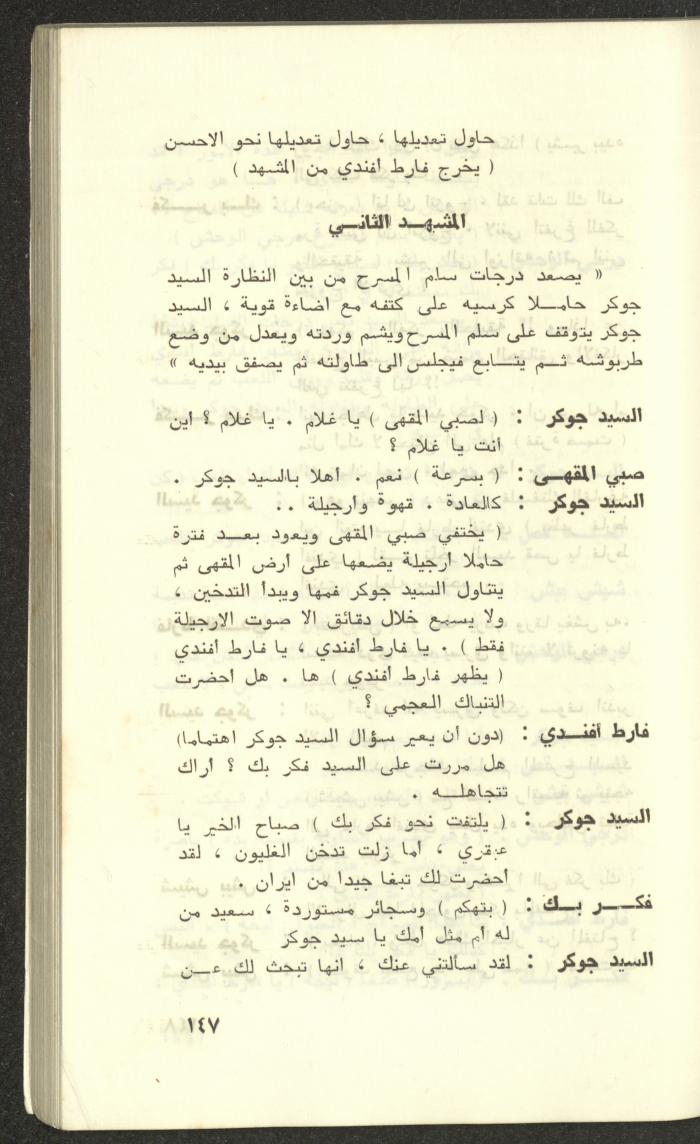 حاول تعديلها ، حاول تعديلها نحو الاحسن
( يخرج فارط أفندي من المشهد )
المشهد الثاني
« يصعد درجات سلم المسرح من بين النظارة السيد
جوكر حاملا كرسيه على كتفه مع اضاءة قوية ، السيد
جوكر يتوقف على سلم المسرح ويشم وردته ويعدل من وضع
طربوشه ثم يتابع فيجلس الى طاولته ثم يصفق بيديه »
السيد جوكر : ( لصبي المقهى ) يا غلام . يا غلام ؟ أين
أنت يا غلام ؟
صبي المقهى : ( بسرعة ) نعم . أهلا بالسيد جوكر .
السيد جوكر : كالعادة . قهوة وأرجيلة . .
( يختفي صبي المقهى ويعود بعد فترة
حاملا أرجيلة يضعها على أرض المقهى ثم
يتناول السيد جوكر فمها ويبدأ التدخين ،
ولا يسمع خلال دقائق الا صوت الارجيلة
فقط ) . يا فارط أفندي ، يا فارط أفندي
( يظهر فارط أفندي ) ها . هل أحضرت
التنباك العجمي ؟
فارط أفندي : (دون أن يعير سؤال السيد جوكر اهتماما)
هل مررت على السيد فكر بك ؟ أراك
تتجاهله .
السيد جوكر : ( يلتفت نحو فكر بك ) صباح الخير يا
عبقري ، أما زلت تدخن الغليون ، لقد
أحضرت لك تبغا جيدا من ايران .
فكر بك : ( بتهكم ) وسجائر مستوردة ، سعيد من
له أم مثل أمك يا سيد جوكر
السيد جوكر : لقد سألتني عنك ، انها تبحث لك عن
١٤٧